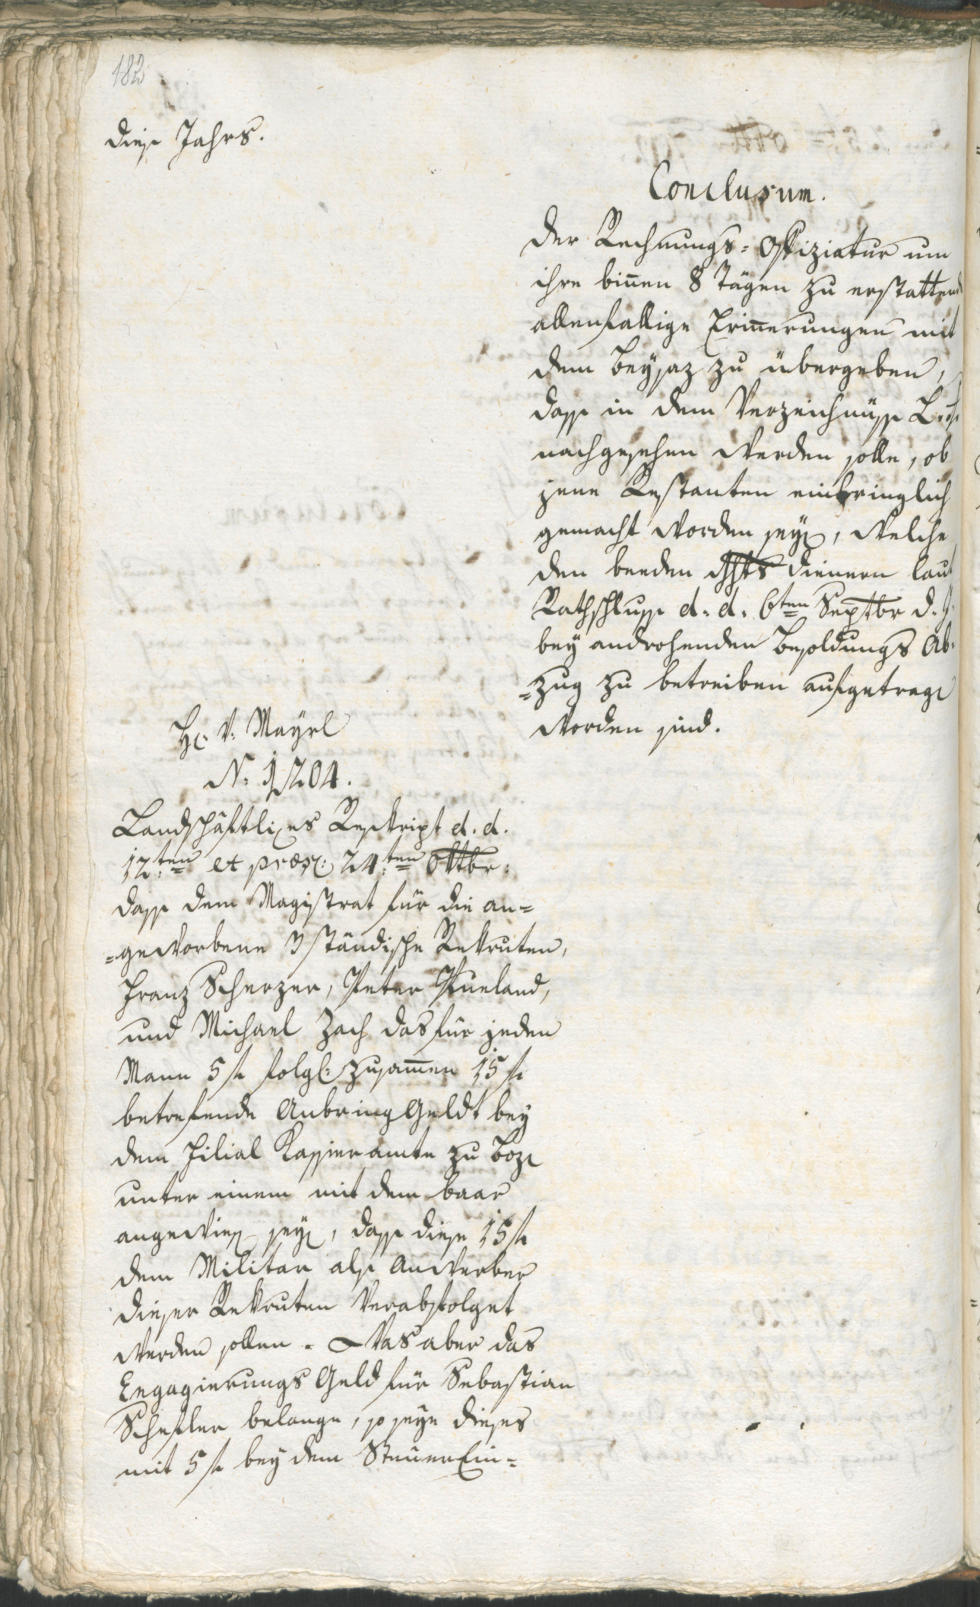 182
diese Jahrs.
Conclusum.
Der Rechnungs-Offiziatur um
ihre binnen 8 Tägen zu erstattend
allenfallige Erinnerungen mit
dem Beysaz zu übergeben,
dass in dem Verzeichnüsse
nachgesehen werden solle, ob
jene Restanten einbringlich
gemacht worden seyn, welche
den beeden dienern laut
Rathschlusse d. d. 6ten Septbr d. J.
bey androhenden Besoldungs Ab-
-zug zu betreiben aufgetragen
worden sind.
H. v. Mayrl
N. 1204.
Landschäftliches Reskript d. d.
12:ten et præs: 24:ten Oktbr:
dass dem Magistrat für die an-
-geworbene 3 ständische Rekruten,
Franz Scherzer, Peter Prueland,
und Michael Zach das für jeden
Mann 5 f. folgl: zusamen 15 f.
betrefende Anbring Geldt bey
dem Filial Kassieramte zu Bozen
unter einem mit dem baar
angewiesen seyn, dass diese 15 f.
dem Militar als Anwerber
dieser Rekruten verabfolget
werden sollen. Was aber das
Engagierungs Geld für Sebastian
Schesler belange, so seye dieses
mit 5 f. bey dem Steuer Ein-